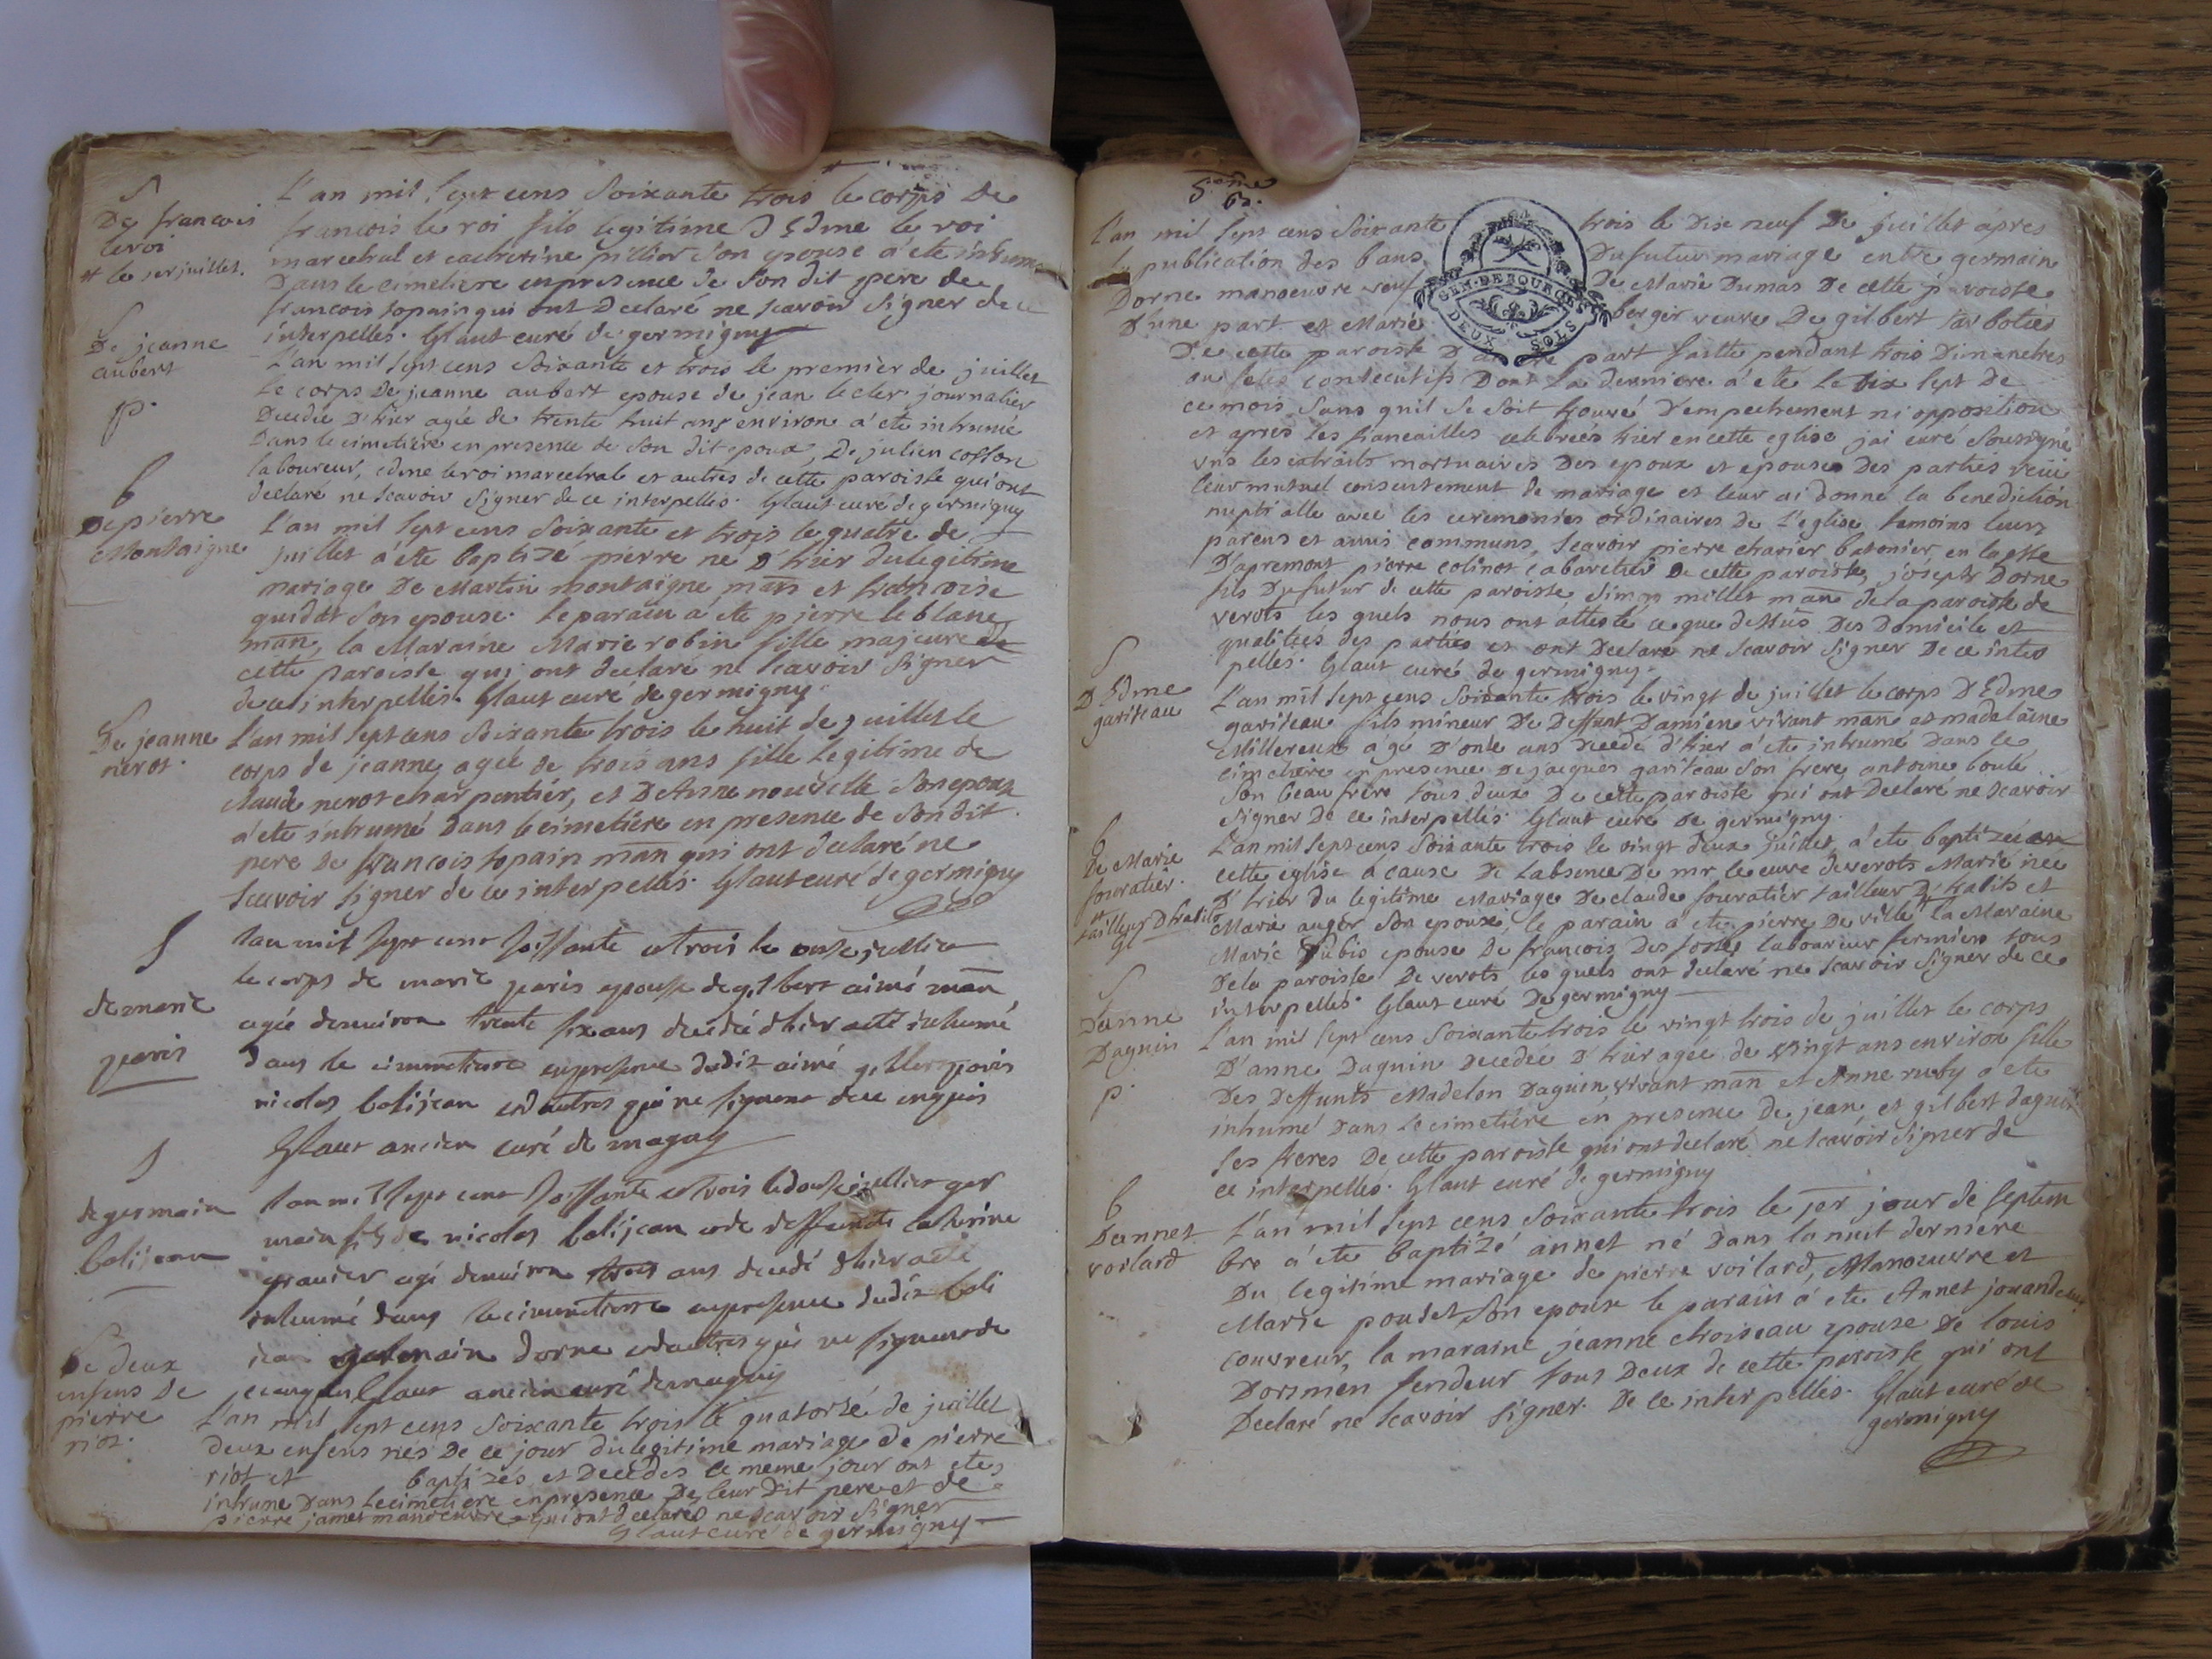 S
De francois
leroi
# le 1er juillet.
L'an mil sept cens Soixante trois # le corps de
francois le roi fils legitime D Edme le roi
marechal et catherine pillior son epouse a été inhumé
Dans le cimetiere en presence de Son dit pere de
francois topain qui ont Declaré ne scavoir Signer de ce
interpellés. Glaut curé de germigny
S
De jeanne
aubert
p.
L'an mil sept cens Soixante et trois le premier de juillet
le corps De jeanne aubert epouse de jean lecler journalier
Decedée D'hier agée de trente huit ans environ a été inhumé
Dans le cimetiere en presence de Son dit epoux, De julien cosson
laboureur, edme le roi marechal et autres de cette paroisse qui ont
declaré ne scavoir Signer de ce interpellés. Glaut curé de germigny
b
De pierre
Montaigne
L'an mil sept cens Soixante et trois le quatre de
juillet a été baptizé pierre né d'hier du legitime
mariage De Martin montaigne man et francoise
guidat Son epouse. le parain a été pierre le blanc
man, la Maraine Marie robin fille majeure de
cette paroisse qui ont declaré ne scavoir Signer
de ce interpellés. Glaut curé de germigny.
S
De jeanne
nerot.
L'an mil sept cens Soixante trois le huit de juillet le
corps de jeanne agée de trois ans fille Legitime de
claude nerot charpentier, et D'Anne nouvelle Son epouse
a été inhumé Dans le cimetiére en presence de Son dit
pere De francois topain man qui ont declaré ne
Scavoir Signer de ce interpellés. Glaut curé de germigny
S
de marie
paris
lan mil sept cent soissante et trois le onse juillier
le corps de marie paris epouse de gilbert aimé man
agée denviron trente six ans decedé dhier a eté inhumé
dans le cimmetiere en presence dudit aimé gilbert paris
nicolas balijean et dautres qui ne signent de ce enquis
Glaut ancien curé de magny
S
de germain
balijean
lan mil sept cent soissante et trois le douse juillier ger
main fils de nicolas balijean et de deffuncte catherine
granier agé denviron trois ans decedé dhier a eté
inhumé dans le cimmetiere en presence dudit bali
jean germain dorne et dautres qui ne signent de
ce enquis Glaut ancien curé de magny
De deux
enfens De
pierre
riot.
L'an mil sept cens Soixante trois le quatorze de juillet
deux enfens nés De ce jour du legitime mariage de pierre
riot et baptizés et Decedés le meme jour ont été
inhumé Dans le cimetiere en presence De leur Dit pere et de
pierre jamet manoeuvre qui ont declarés ne scavoir Signer
Glaut curé de germigny
5eme
63.
L'an mil sept cens Soixante trois le Dix neuf De juillet apres
la publication des bans Du futur mariage entre germain
Dorne manoeuvre veuf De Marie Dumas De cette paroisse
D'une part et Marie berger veuve De gilbert
De cette paroisse D'autre part faitte pendant trois Dimanches
ou fetes consecutifs Dont la derniere a été le dix sept de
ce mois Sans qu'il Se Soit trouvé D'empechement ni opposition
et apres les fiancailles celebrées hier en cette eglise jai curé Soussigné
vus les extraits mortuaires Des epoux et epouse Des parties recu
leur mutuel consentement de mariage et leur ai donné la benediction
nuptialle avec les ceremonies ordinaires De L'eglise temoins leurs
parens et amis communs, scavoir pierre charier batonier en laditte
D'apremont pierre colinot cabaretier De cette paroisse, joseph Dorne
fils Du futur de cette paroisse Simon millet man de la paroisse de
verots les quels nous ont attesté ce que dessus Des Domicile et
qualitées des parties et ont Declaré ne scavoir Signer De ce inter
pellés. Glaut curé de germigny.
S
D Edme
gariteau
L'an mil sept cens Soixante trois le vingt de juillet le corps D'Edme
gariteau fils mineur De Deffunt Damien vivant man et madelaine
Millereux agé d'onze ans Decedé d'hier a été inhumé Dans le
cimetiere en presence De jacques gariteau Son frere antoine boulé
Son beau frere tous deux De cette paroisse qui ont Declaré ne scavoir
Signer De ce interpellés. Glaut curé de germigny.
b
De Marie
fouratier.
#
tailleur D'habits
L'an mil sept cens Soixante trois le vingt deux juillet a été baptizée en
cette eglise a cause De Labsence De mr le curé de verots Marie née
D'hier du legitime Mariage De claude fouratier tailleur D'habits et
Marie auger Son epouse, le parain a été pierre De ville la Maraine
Marie Dubio epouse De francois Des fosses laboureur fermier tous
De la paroisse De verots les quels ont declaré ne scavoir Signer de ce
interpellés. Glaut curé De germigny
S
D'anne
Daguin
p.
L'an mil sept cens Soixante trois le vingt trois de juillet le corps
D'anne Daguin Decedée D'hier agée de vingt ans environ fille
Des Deffunts Madelon Daguin vivant man et Anne ruby a été
inhumé Dans le cimetiére en presence De jean et gilbert daguin
Ses freres De cette paroisse qui ont declaré ne scavoir Signer de
ce interpellés. Glaut curé de germigny
b
D'annet
voilard
L'an mil sept cens Soixante trois le 1er jour de Septem
bre a été baptizé annet né Dans la nuit derniere
Du legitime mariage de pierre voilard, Manoeuvre et
Marie poudet Son epouse le parain a été Annet
couvreur, la maraine jeanne choiseau epouse De louis
Dormen fendeur tous Deux de cette paroisse qui ont
Declaré ne scavoir Signer. De ce interpellés. Glaut curé de
germigny
GEN. DE BOURGES
DEUX SOLS